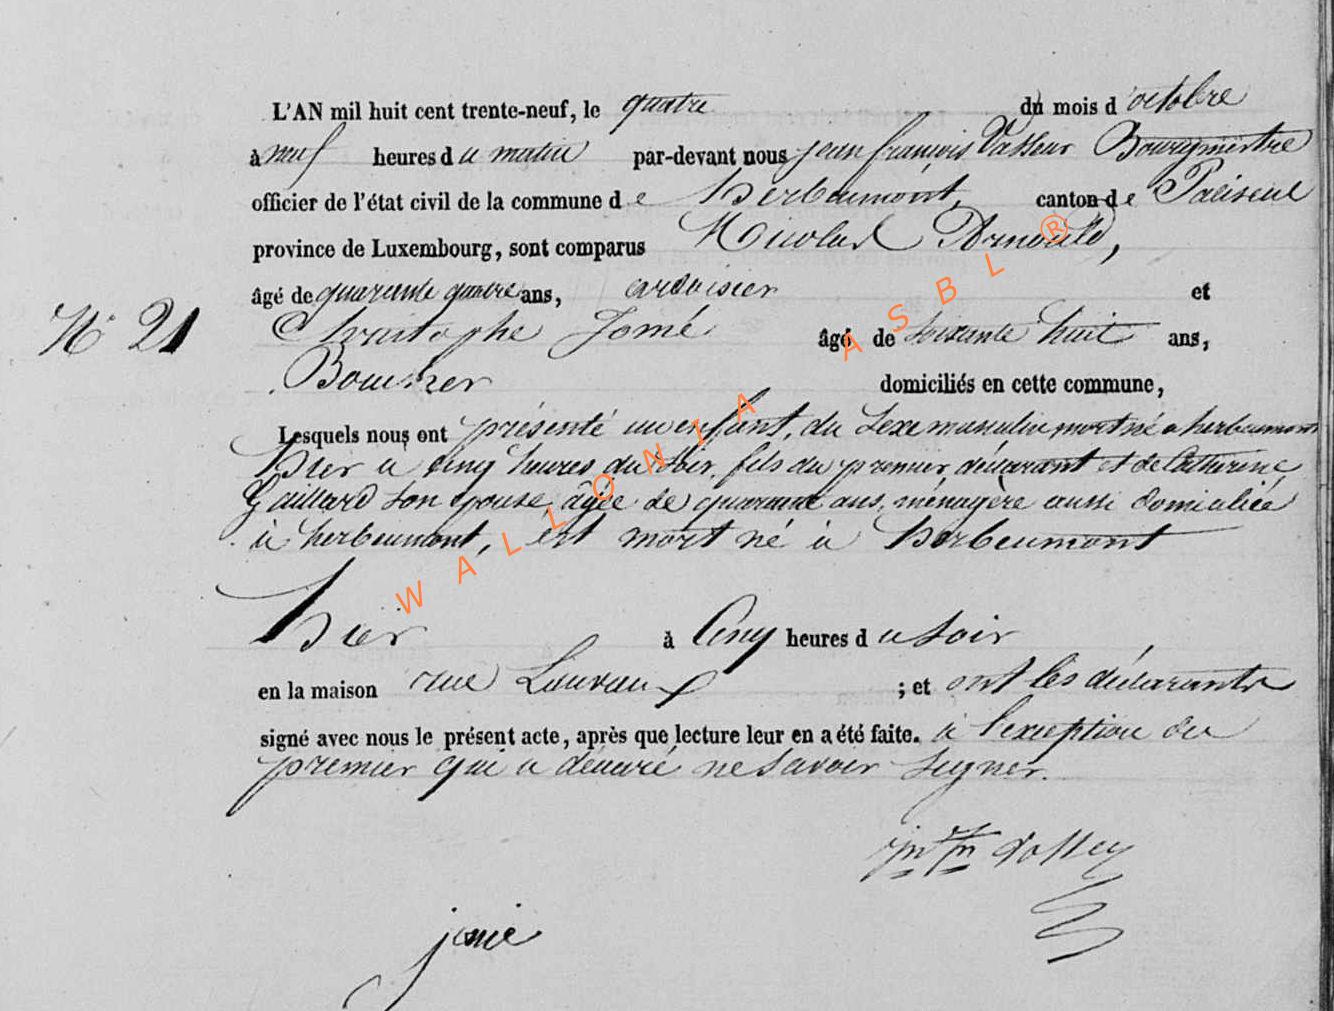 L'AN mil huit cent trente-neuf, le quatre du mois d'octobre
à neuf heures du matin par-devant nous jean françois Vasseur Bourgmestre
officier de l'état civil de la commune de herbeumont, canton de Paliseul
province de Luxembourg, sont comparus Nicolas Arnould,
âgé de quarante quatre ans, ardoisier et
N° 21 Christophe Jomé âgé de soixante huit ans,
domiciliés en cette commune,
Lesquels nous ont présenté un enfant, du sexe masculin mort né a herbeumont
hier a cinq heures du soir, fils du premier déclarant et de Catherine
Gaillard son epouse, âgée de quarante ans, ménagère aussi domiciliée
à herbeumont, est mort né à herbeumont
hier à Cinq heures du soir
en la maison rue ; et ont les déclarants
signé avec nous le présent acte, après que lecture leur en a été faite. à l'exception du
premier qui a déclaré ne savoir signer.
jomé
WALLONIA ASBL ®